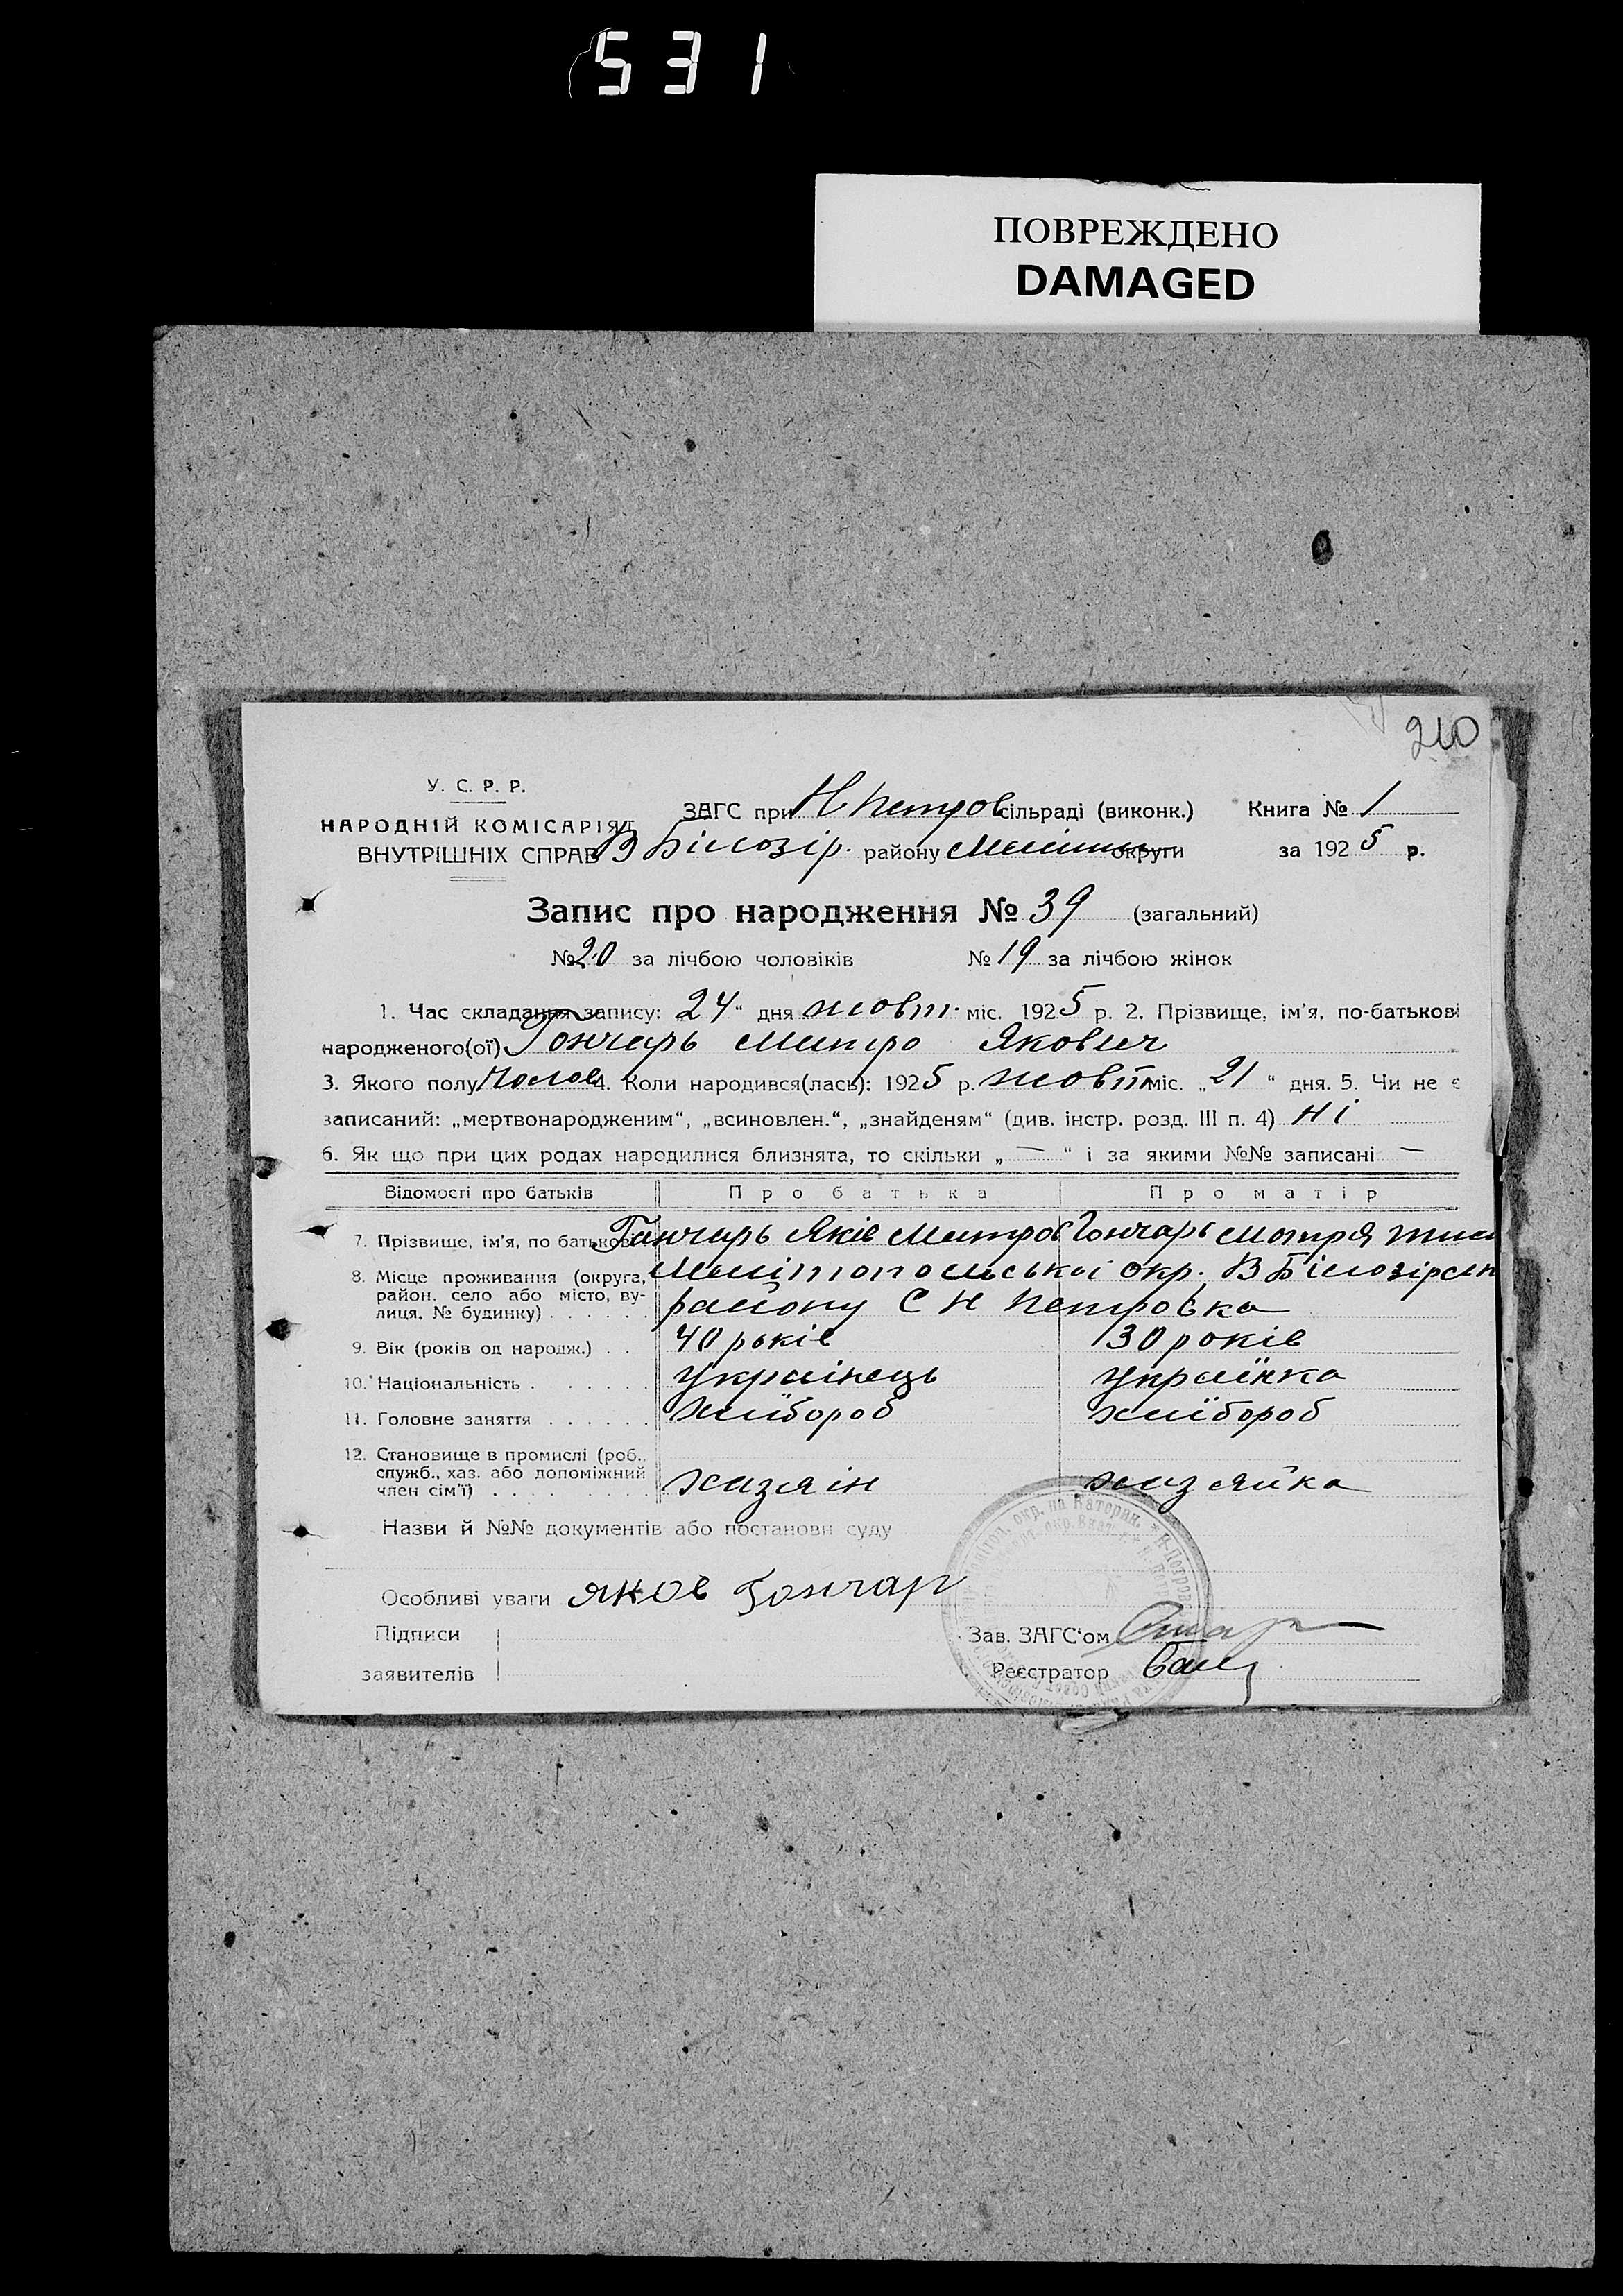 531
ПОВРЕЖДЕНО
DAMAGED
210
У. С. Р. Р.
НАРОДНІЙ КОМІСАРІЯТ
ВНУТРІШНІХ СПРАВ
ЗАГС при Н Петров сільраді (виконк.) Книга № 1
В Білозір. району Меліт округи за 1925 р.
Запис про народження № 39 (загальний)
№ 20 за лічбою чоловіків № 19 за лічбою жінок
1. Час складання запису: 24 “ дня жовт. міс. 1925 р. 2. Прізвище, ім'я, по-батькові
народженого(ої) Гончарь Митро Якович
3. Якого полу Чолов 4. Коли народився(лась): 1925 р. жовт міс. „ 21 “ дня. 5. Чи не є
записаний: „мертвонародженим“, „всиновлен.“, „знайденям“ (див. інстр. розд. III п. 4) ні
6. Як що при цих родах народилися близнята, то скільки „ — “ і за якими №№ записані —
Відомості про батьків Про батька Про матір
7. Прізвище, ім'я, по батькові Гончарь Яків Митров Гончарь Мотря
8. Місце проживання (округа, Мелітопольської окр. В Білозірсьн
район, село або місто, ву- району С Н Петровка
лиця, № будинку) . . . . . .
9. Вік (років од народж.) . . 40 років 30 років
10. Національність . . . . . . українець українка
11. Головне заняття . . . . . . хлібороб хлібороб
12. Становище в промислі (роб.,
служб., хаз. або допоміжний
член сім'ї) . . . . . . . . хазяін хазяйка
Назви й №№ документів або постанови суду
Особливі уваги Яков Гончар
Підписи
заявителів
Зав. ЗАГС'ом
Реєстратор